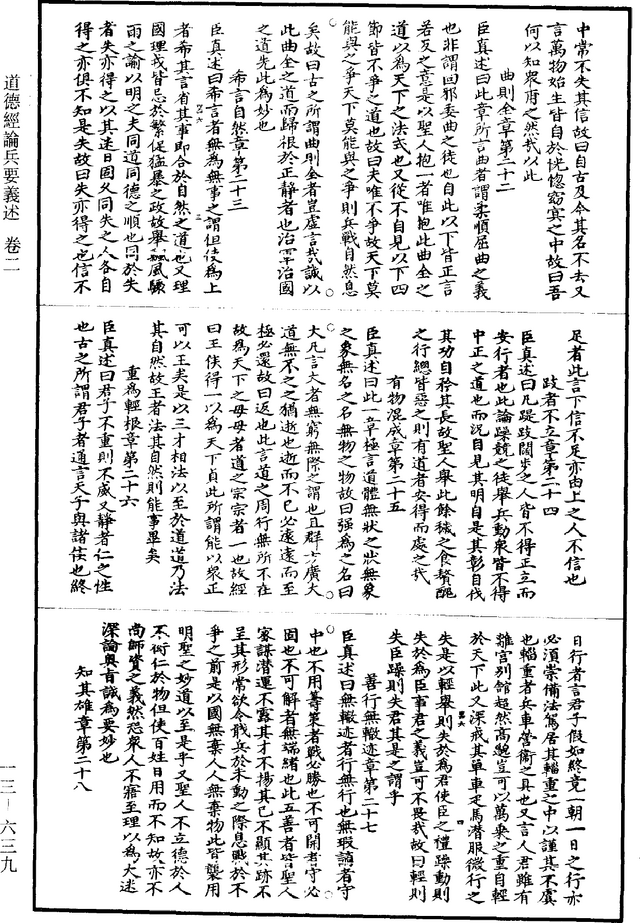 道德經論兵要義述 卷二
一三－六三九
中常不失其信故曰自古及今其名不去又
言萬物始生皆自於恍惚窈冥之中故曰吾
何以知眾甫之然哉以此
曲則全章第二十二
臣真述曰此章所言曲者謂柔順屈曲之義
也非謂回邪委曲之徒也自此以下皆正言
若反之意是以聖人抱一者唯抱此曲全之
道以為天下之法式也又從不自見以下四
節皆不爭之道也故曰夫唯不爭故天下莫
能與之爭天下莫能與之爭則兵戰自然息
矣故曰古之所謂曲則全者豈虛言哉誠以
此曲全之道而歸根於正靜者也治軍治國
之道先此為妙也
希言自然章第二十三
臣真述曰希言者無為無事之謂但使為上
者希其言省其事即合於自然之道也又理
國理戎皆忌於繁促猛暴之政故舉飄風驟
雨之諭以明之夫同道同德之順也同於失
者失亦得之以其迷日固又同失之人各自
得之亦俱不知是失故曰失亦得之也信不
足者此言下信不足亦由上之人不信也
跂者不立章第二十四
臣真述曰凡踶跂闊步之人皆不得正立而
安行者也此論躁競之徒舉兵動眾皆不得
中正之道也而況自見其明自是其彰自伐
其功自矜其長故聖人舉此餘穢之食贅醜
之行總皆惡之則有道者安得而處之哉
有物混成章第二十五
臣真述曰此一章極言道體無狀之狀無象
之象無名之名無物之物故曰強為之名曰
大凡言大者無窮無際之謂也且群士廣大
道無不之之猶逝也逝而不已必遠遠而至
極必還故曰返也此言道之周行無所不在
故為天下之母母者道之宗宗者一也故經
曰王侯得一以為天下貞此所謂能以眾正
可以王矣是以三才相法以至於道道乃法
其自然故王者法其自然則能事畢矣
重為輕根章第二十六
臣真述曰君子不重則不威又靜者仁之性
也古之所謂君子者通言天子與諸侯也終
日行者言君子假如終竟一朝一日之行亦
必須崇備法駕居其輜重之中以謹其不虞
也輜重者兵車營衛之具也又言人君雖有
離宮別館超然高甍豈可以萬乘之重自輕
於天下此又深戒其單車走馬潛服微行之
失是以輕舉則失於為君使臣之體躁動則
失於為臣事君之義豈可不畏哉故曰輕則
失臣躁則失君其是之謂乎
善行無轍迹章第二十七
臣真述曰無轍迹者行無行也無瑕讁者守
中也不用籌策者戰必勝也不可開者守必
固也不可解者無端緒也此五善者皆聖人
密謀潛運不露其才不揚其己不顯其跡不
呈其形常欲令戢兵於未動之際息戰於不
爭之前是以國無棄人人無棄物此皆襲用
明聖之妙道以至是乎又聖人不立德於人
不衒仁於物但使百姓日用而不知故亦不
尚師資之義然恐眾人不寤至理以為大迷
深論奧旨誠為要妙也
知其雄章第二十八